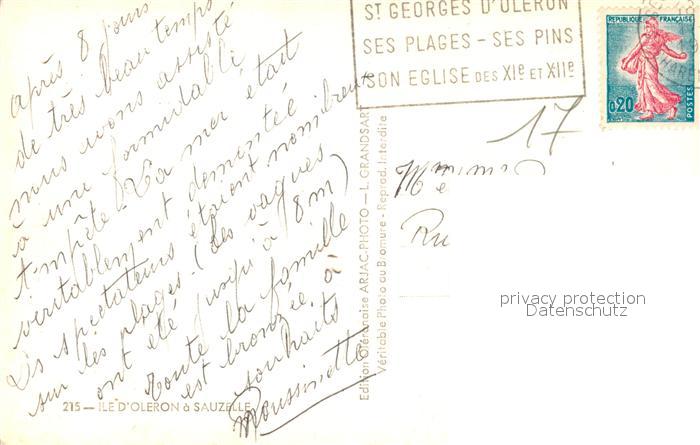 après 8 jours
de très beau temps
nous avons assisté
à une formidable
tempête. La mer était
véritablement démontée
Les spectateurs étaient nombreux
sur les plages. (des vagues
ont été jusqu'à 8 m)
Toute la famille
est bronzée à
souhaits
Moussinette
215 — ILE D'OLERON à SAUZELLE
Edition Oléronaise ARJAC-PHOTO — L. GRANDSART
Véritable Photo au Bromure - Reprod. Interdite
ST GEORGES D'OLERON
SES PLAGES - SES PINS
SON EGLISE DES XIe ET XIIe
REPUBLIQUE FRANÇAISE
0,20
POSTES
17
Ru
privacy protection
Datenschutz